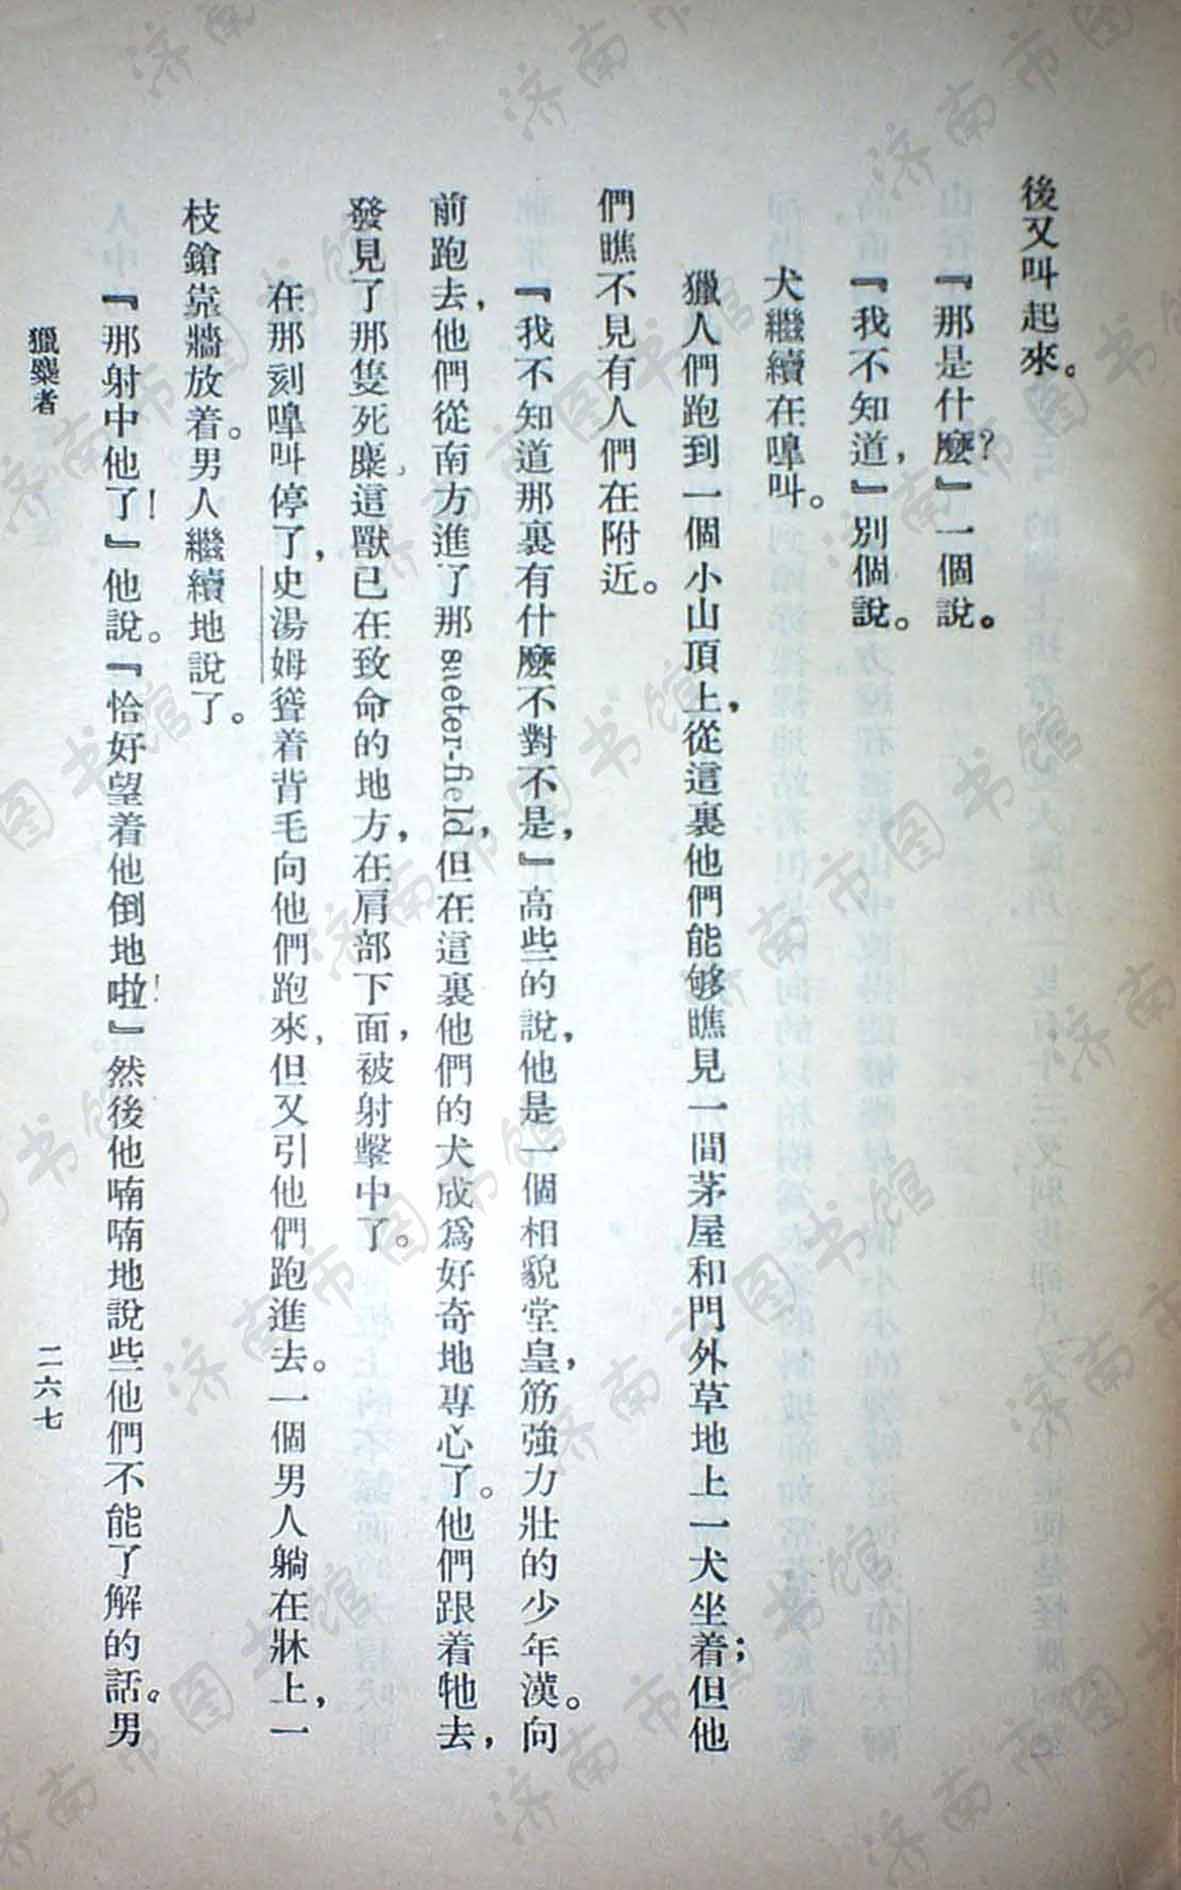 後又叫起來。
『那是什麼？』一個說。
『我不知道，』別個說。
犬繼續在嘷叫。
獵人們跑到一個小山頂上，從這裏他們能够瞧見一間茅屋和門外草地上一犬坐着；但他
們瞧不見有人們在附近。
『我不知道那裏有什麼不對不是，』高些的說，他是一個相貌堂皇，筋強力壯的少年漢。向
前跑去，他們從南方進了那sueter-field，但在這裏他們的犬成爲好奇地專心了。他們跟着牠去，
發見了那隻死麋。這獸已在致命的地方，在肩部下面，被射擊中了。
在那刻嘷叫停了，史湯姆聳着背毛向他們跑來，但又引他們跑進去。一個男人躺在牀上，一
枝鎗靠牆放着。男人繼續地說了。
『那射中他了！』他說。『恰好望着他倒地啦！』然後他喃喃地說些他們不能了解的話。男
獵麋者
二六七
济南市图书馆